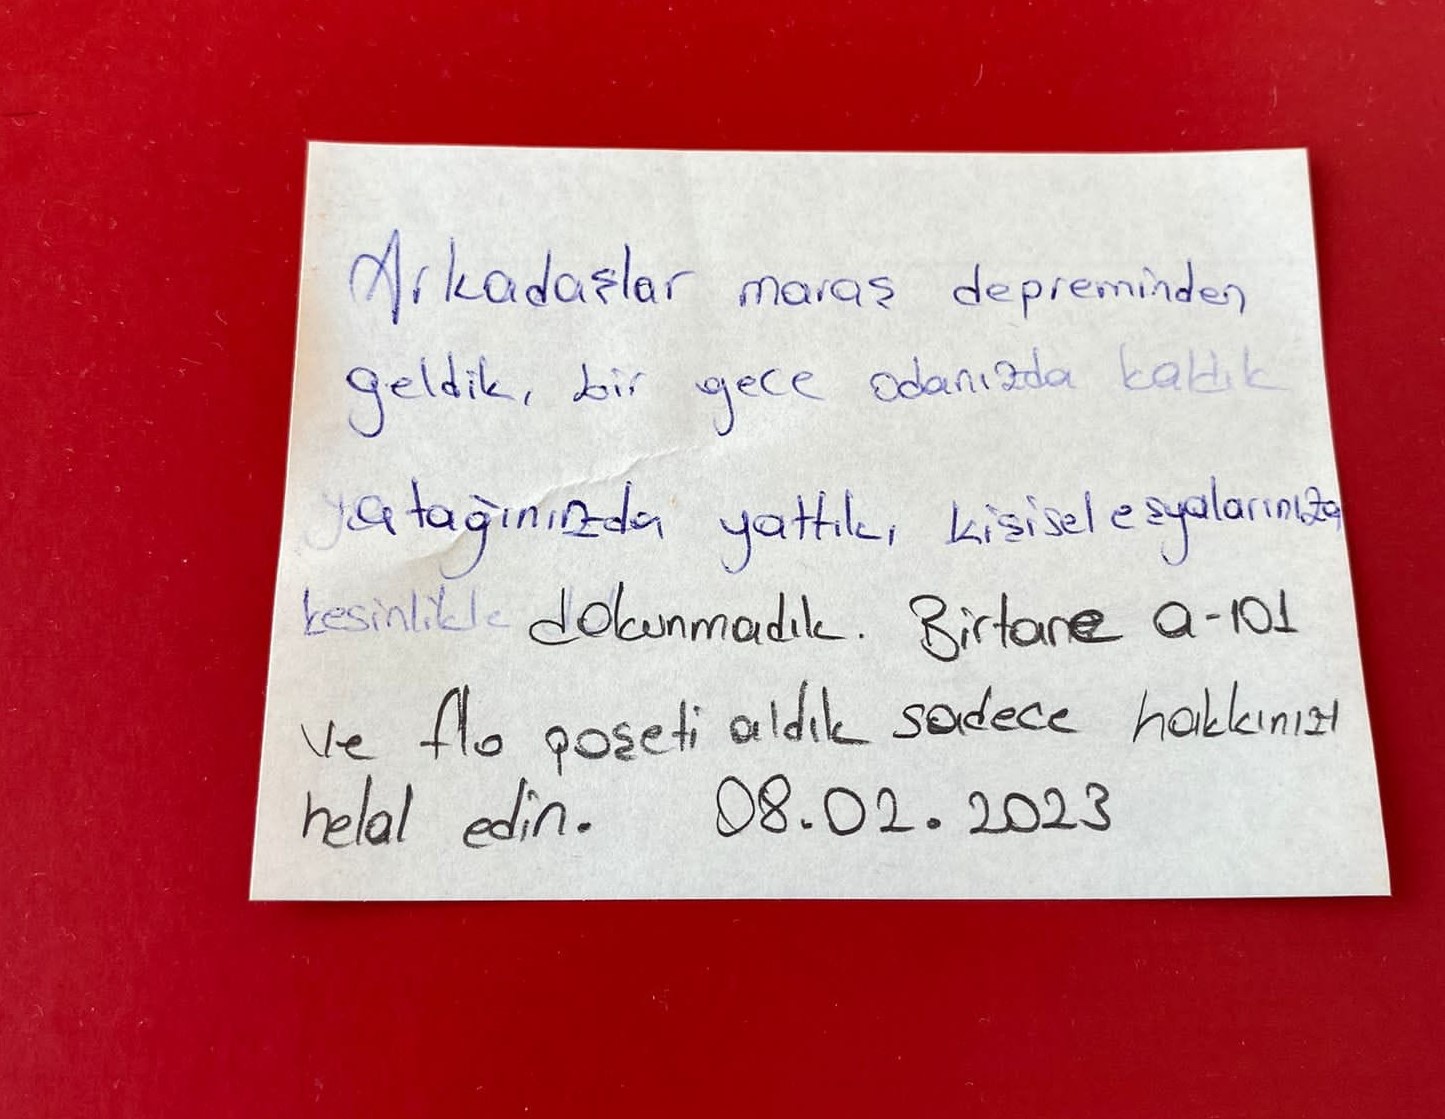 Arkadaşlar maraş depreminden
geldik, bir gece odanızda kaldık
yatağınızda yattık, kişisel eşyalarınıza
kesinlikle dokunmadık. Birtane a-101
ve flo poşeti aldık sadece hakkınızı
helal edin. 08.02.2023